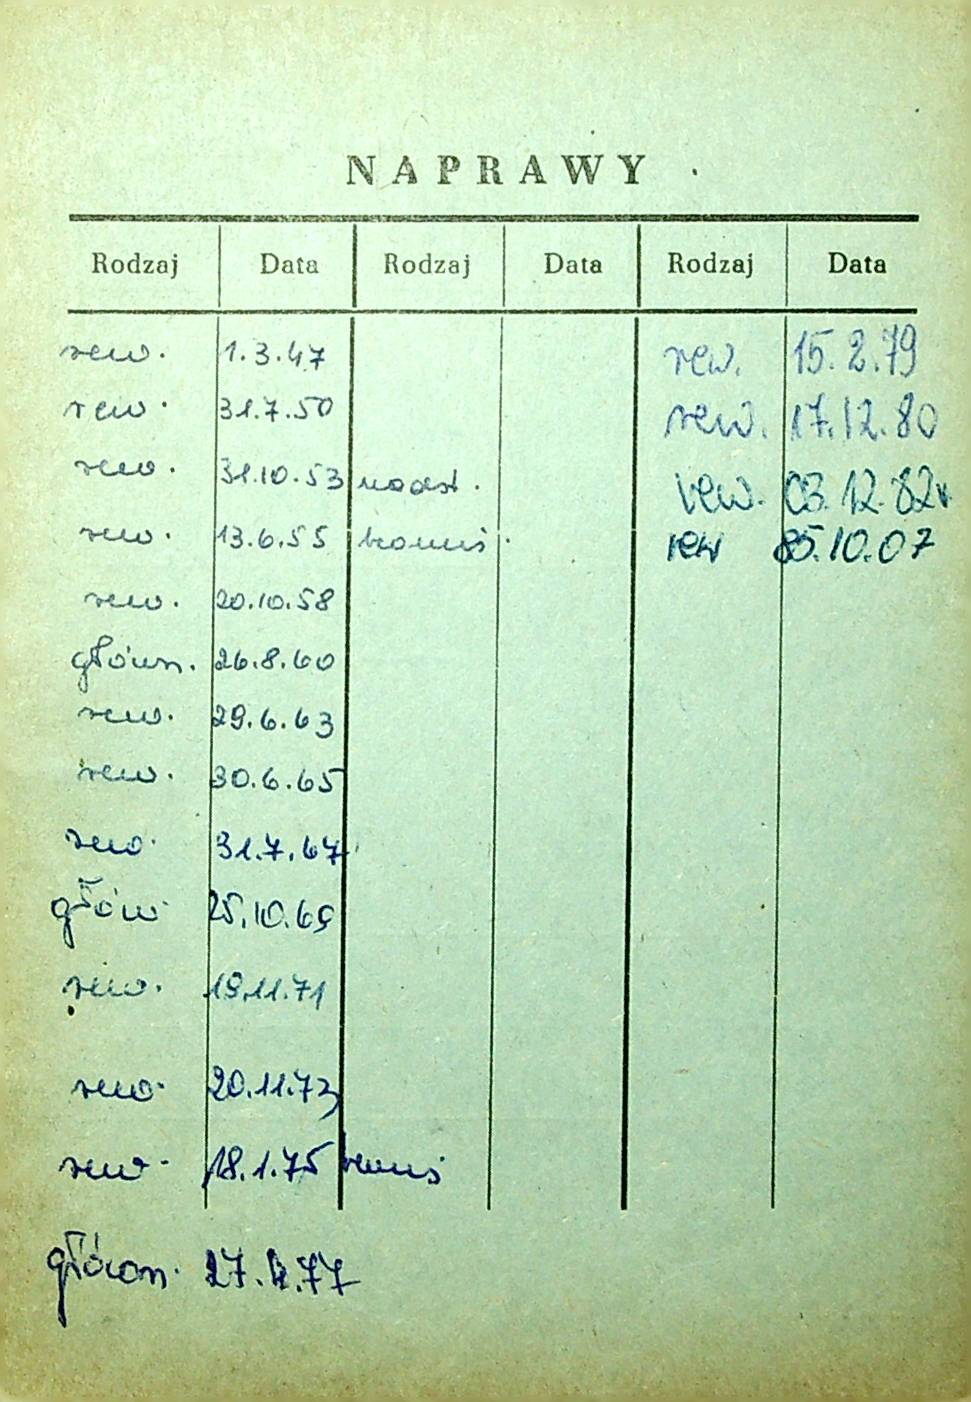 NAPRAWY
Rodzaj Data Rodzaj Data Rodzaj Data
rew. 1.3.47 rew. 15.2.79
rew. 31.7.50 rew. 17.12.80
rew. 31.10.53 rew. 03.12.82r
rew. 13.6.55 rew 85.10.07
rew. 20.10.58
główn. 26.8.60
rew. 29.6.63
rew. 30.6.65
rew. 31.7.67
głów 25.10.69
rew. 19.11.71
rew. 20.11.73
rew. 18.1.75
główn. 27.4.77